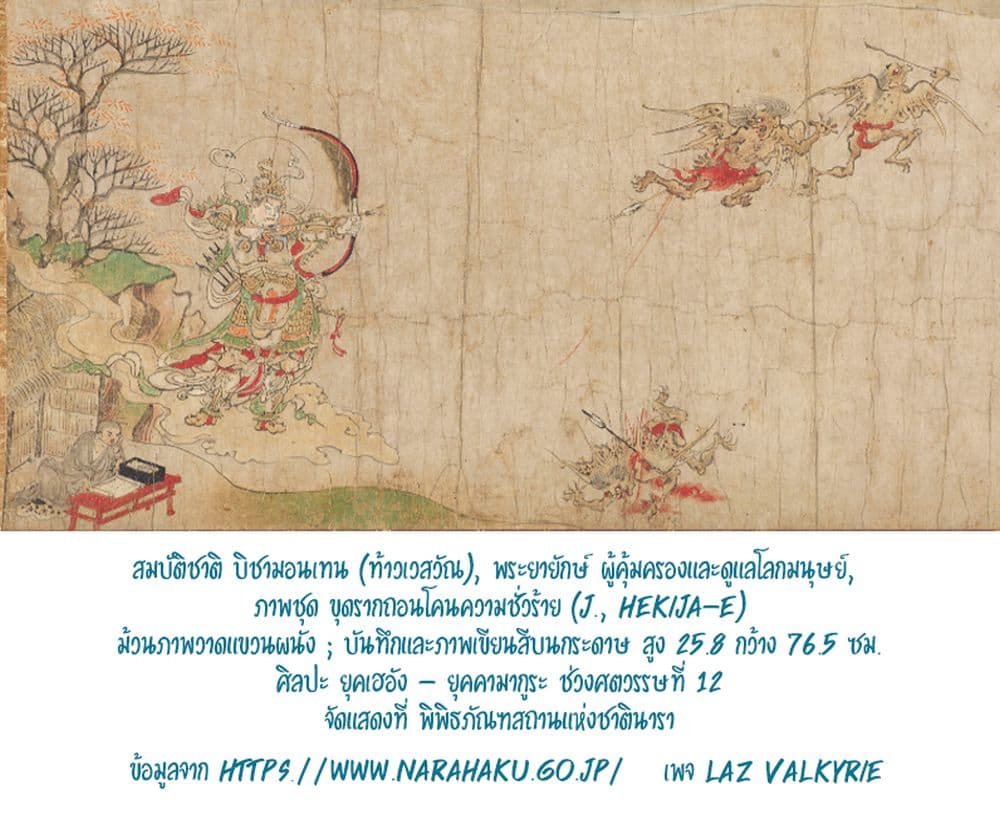 สมบัติชาติ บิชามอนเทน (ท้าวเวสวัณ), พระยายักษ์ ผู้คุ้มครองและดูแลโลกมนุษย์,
ภาพชุด ขุดรากถอนโคนความชั่วร้าย (J., HEKIJA-E)
ม้วนภาพวาดแขวนผนัง ; บันทึกและภาพเขียนสีบนกระดาษ สูง 25.8 กว้าง 76.5 ซม.
ศิลปะ ยุคเฮอัง – ยุคคามากูระ ช่วงศตวรรษที่ 12
จัดแสดงที่ พิพิธภัณฑสถานแห่งชาตินารา
ข้อมูลจาก HTTPS://WWW.NARAHAKU.GO.JP/ เพจ LAZ VALKYRIE